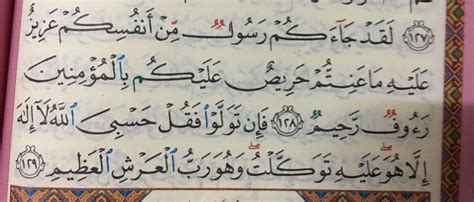 ﴿١٢٧﴾ لَقَدْ جَآءَكُمْ رَسُولٌ مِّنْ أَنفُسِكُمْ عَزِيزٌ
عَلَيْهِ مَا عَنِتُّمْ حَرِيصٌ عَلَيْكُم بِالْمُؤْمِنِينَ
رَءُوفٌ رَّحِيمٌ ﴿١٢٨﴾ فَإِن تَوَلَّوْا فَقُلْ حَسْبِيَ اللَّهُ لَآ إِلَٰهَ
إِلَّا هُوَ ۖ عَلَيْهِ تَوَكَّلْتُ ۖ وَهُوَ رَبُّ الْعَرْشِ الْعَظِيمِ ﴿١٢٩﴾